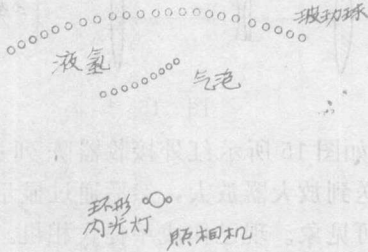 波动球
液氢
气泡
环形
闪光灯
照相机